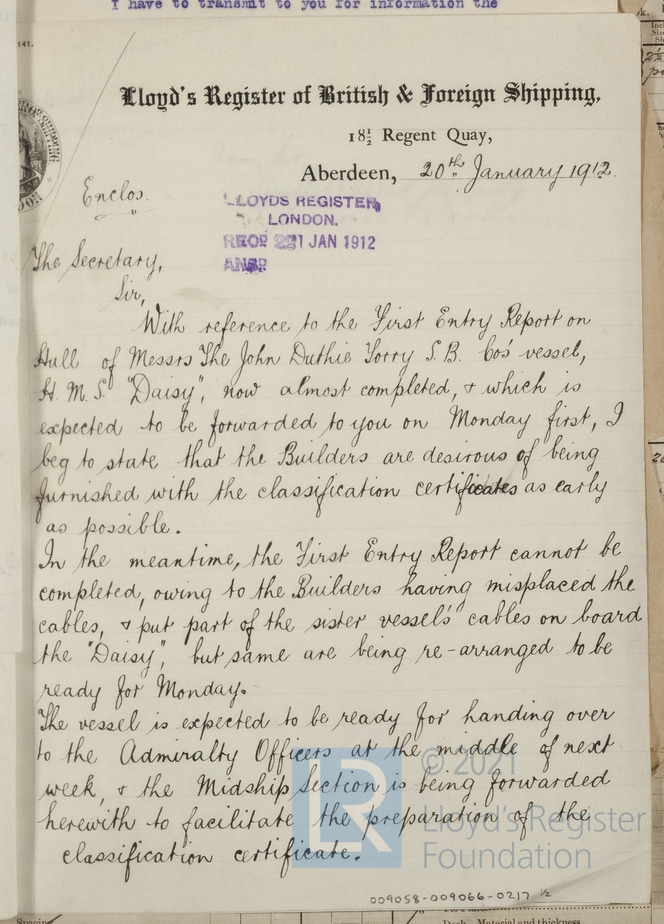 I have to transmit to you for information the
141.
Lloyd's Register of British & Foreign Shipping,
18½ Regent Quay,
Aberdeen, 20th January 1912.
Enclos.
LLOYDS REGISTER,
LONDON.
JAN 1912
The Secretary,
Sir,
With reference to the First Entry Report on
Hull of Messrs The John Duthie Torry S.B. Co's vessel,
H.M.S. "Daisy", now almost completed, & which is
expected to be forwarded to you on Monday first, I
beg to state that the Builders are desirous of being
furnished with the classification certificates as early
as possible.
In the meantime, the First Entry Report cannot be
completed, owing to the Builders having misplaced the
cables, & put part of the sister vessel's cables on board
the "Daisy", but same are being re-arranged to be
ready for Monday.
The vessel is expected to be ready for handing over
to the Admiralty Officers at the middle of next
week, & the Midship Section is being forwarded
herewith to facilitate the preparation of the
classification certificate.
LR
© 2021
Lloyd's Register
Foundation
009058-009066-0217 ½
Spacing